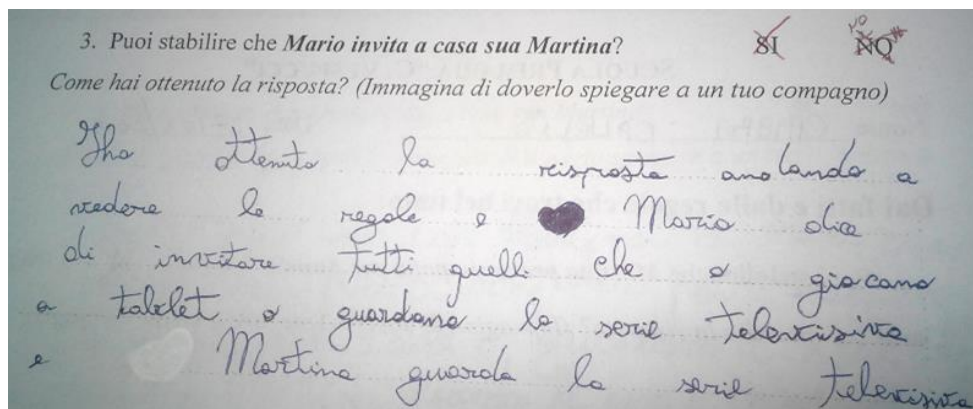 3. Puoi stabilire che Mario invita a casa sua Martina? SI NO
NO
Come hai ottenuto la risposta? (Immagina di doverlo spiegare a un tuo compagno)
Iho ottenuto la risposta andando a
vedere le regole e Mario dice
di invitare tutti quelli che o giocano
a tablet o guardano la serie televisiva
e Martina guarda la serie televisiva